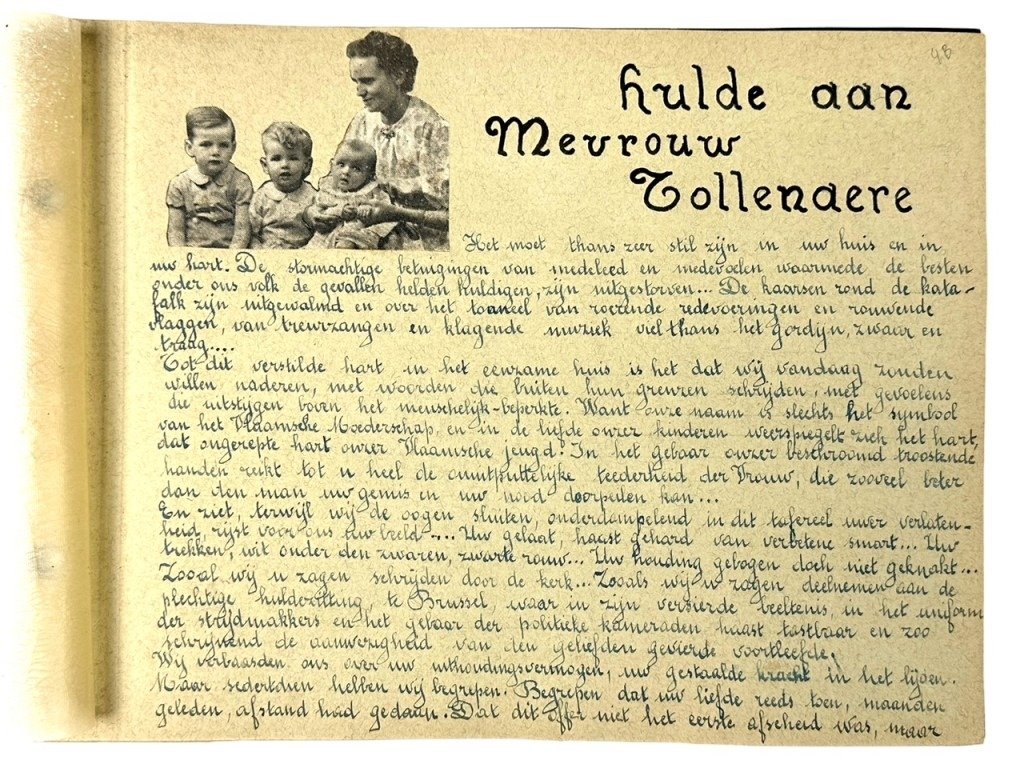 98
Hulde aan
Mevrouw
Tollenaere
Het moet thans zeer stil zijn in uw huis en in
uw hart. De stormachtige betuigingen van medeleed en medevoelen waarmede de besten
onder ons volk de gevallen helden huldigen, zijn uitgestorven... De kaarsen rond de kata-
falk zijn uitgewalmd en over het toaneel van roerende redevoeringen en rouwende
vlaggen, van treurzangen en klagende muziek viel thans het gordijn, zwaar en
traag....
Tot dit verstilde hart in het eenzame huis is het dat wij vandaag zouden
willen naderen, met woorden die buiten hun grenzen schrijden, met gevoelens
die uitstijgen boven het menschelijk-beperkte. Want onze naam is slechts het symbool
van het Vlaamsche Moederschap, en in de liefde onzer kinderen weerspiegelt zich het hart,
dat ongerepte hart onzer Vlaamsche jeugd! In het gebaar onzer beschroomd troostende
handen reikt tot u heel de onuitputtelijke teederheid der Vrouw, die zooveel beter
dan den man uw gemis en uw nood doorpeilen kan...
En ziet, terwijl wij de oogen sluiten, onderdompelend in dit tafereel uwer verlaten-
heid, rijst voor ons uw beeld.... Uw gelaat, haast gehard van verbetene smart... Uw
trekken, wit onder den zwaren, zwarte rouw... Uw houding gebogen doch niet geknakt...
Zooals wij u zagen schrijden door de kerk... Zooals wij u zagen deelnemen aan de
plechtige huldezitting, te Brussel, waar in zijn versierde beeltenis, in het uniform
der strijdmakkers en het gebaar der politieke kameraden haast tastbaar en zoo
schrijnend de aanwezigheid van den geliefden gevierde voortleefde.
Wij verbaasden ons over uw uithoudingsvermogen, uw gestaalde kracht in het lijden.
Maar sedertdien hebben wij begrepen. Begrepen dat uw liefde reeds toen, maanden
geleden, afstand had gedaan. Dat dit offer niet het eerste afscheid was, maar